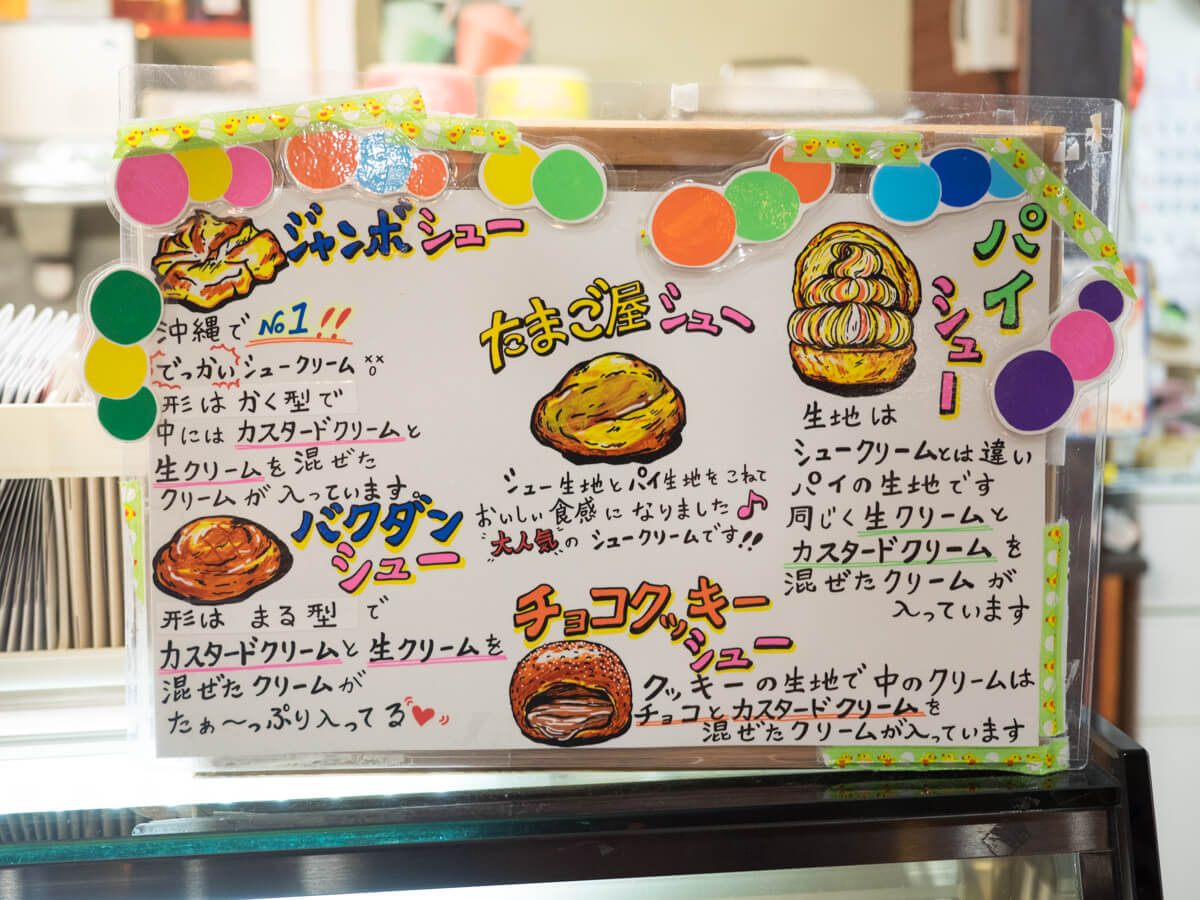 ジャンボシュー
沖縄で No1!!
でっかいシュークリーム
形は かく型で
中には カスタードクリームと
生クリームを混ぜた
クリームが入っています。
バクダン
シュー
形は まる型 で
カスタードクリームと 生クリームを
混ぜたクリームが
たぁ〜っぷり入ってる
たまご屋シュー
シュー生地とパイ生地をこねて
おいしい食感になりました♪
"大人気"の シュークリームです!!
チョコクッキー
シュー
クッキーの生地で中のクリームは
チョコとカスタードクリームを
混ぜたクリームが入っています
パイ
シュー
生地は
シュークリームとは違い
パイの生地です
同じく生クリームと
カスタードクリームを
混ぜたクリームが
入っています